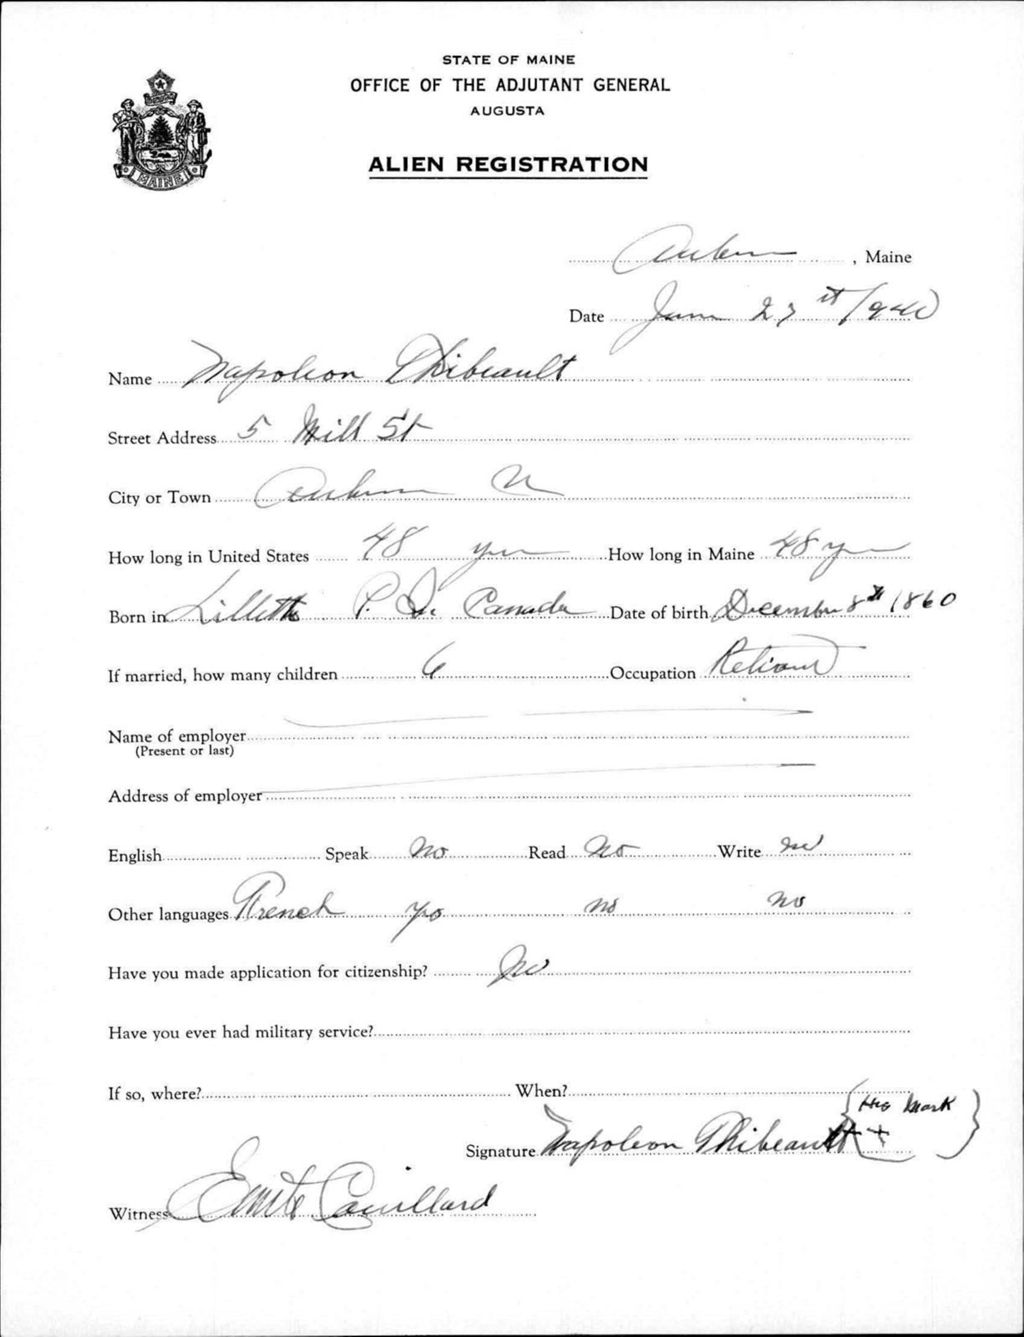 STATE OF MAINE
OFFICE OF THE ADJUTANT GENERAL
AUGUSTA
MAINE
ALIEN REGISTRATION
Auburn, Maine
Date June 27th 1940
Name Napoleon Thibeault
Street Address 5 Mill St
City or Town Auburn
How long in United States 48 yrs How long in Maine 48 yrs
Born in P. Q. Canada Date of birth December 8th 1860
If married, how many children 6 Occupation
Name of employer
(Present or last)
Address of employer
English Speak No Read No Write no
Other languages French yes no no
Have you made application for citizenship? No
Have you ever had military service?
If so, where? When?
His Mark
Signature Napoleon Thibeault +
Witness Couillard